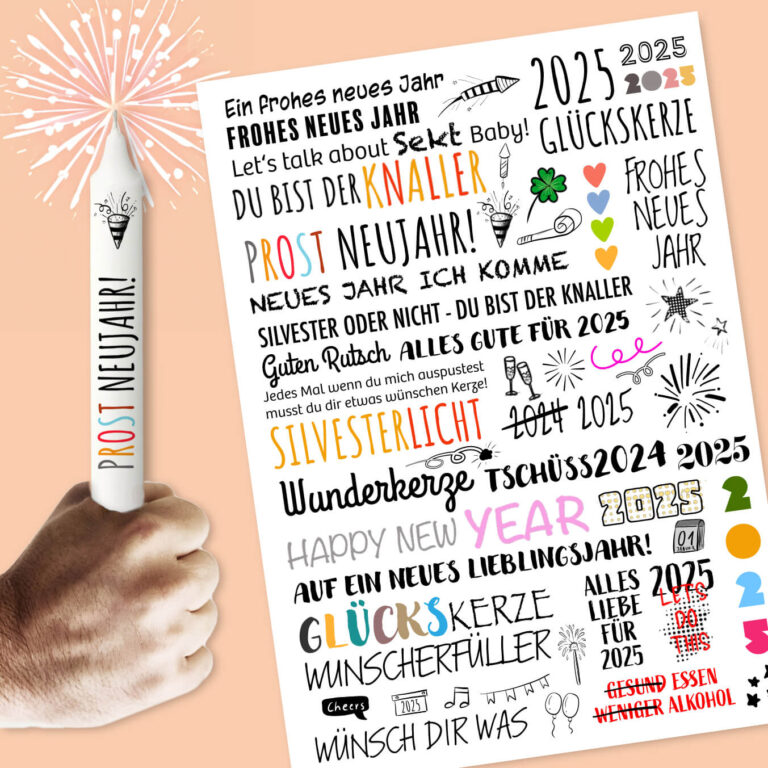 PROST NEUJAHR!
Ein frohes neues Jahr
FROHES NEUES JAHR
Let's talk about Sekt Baby!
DU BIST DER KNALLER
PROST NEUJAHR!
NEUES JAHR ICH KOMME
SILVESTER ODER NICHT - DU BIST DER KNALLER
Guten Rutsch
ALLES GUTE FÜR 2025
Jedes Mal wenn du mich auspustest
musst du dir etwas wünschen Kerze!
SILVESTERLICHT
2024 2025
Wunderkerze
TSCHÜSS2024
2025
HAPPY NEW YEAR
2025
AUF EIN NEUES LIEBLINGSJAHR!
GLÜCKSKERZE
WUNSCHERFÜLLER
Cheers
2025
WÜNSCH DIR WAS
2025
2025
2025
GLÜCKSKERZE
FROHES
NEUES
JAHR
01
JANUAR
2025
ALLES
LIEBE
FÜR
2025
2025
LET'S
DO
THIS
GESUND ESSEN
WENIGER ALKOHOL